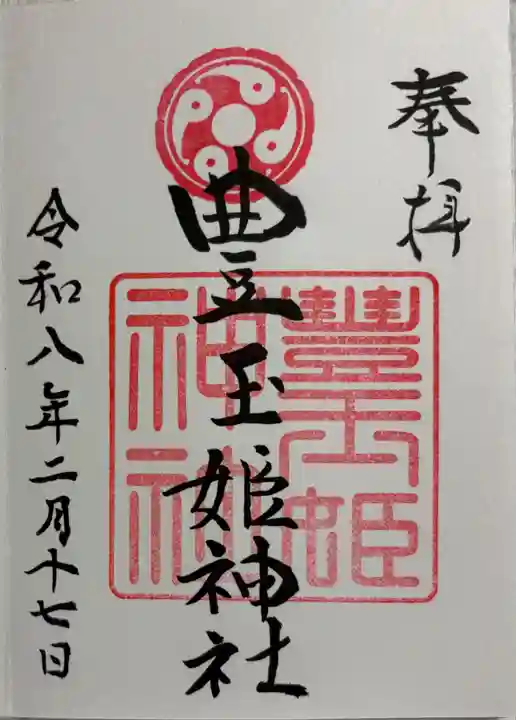 奉拝
豊玉姫神社
豊玉姫
神社
令和八年二月十七日